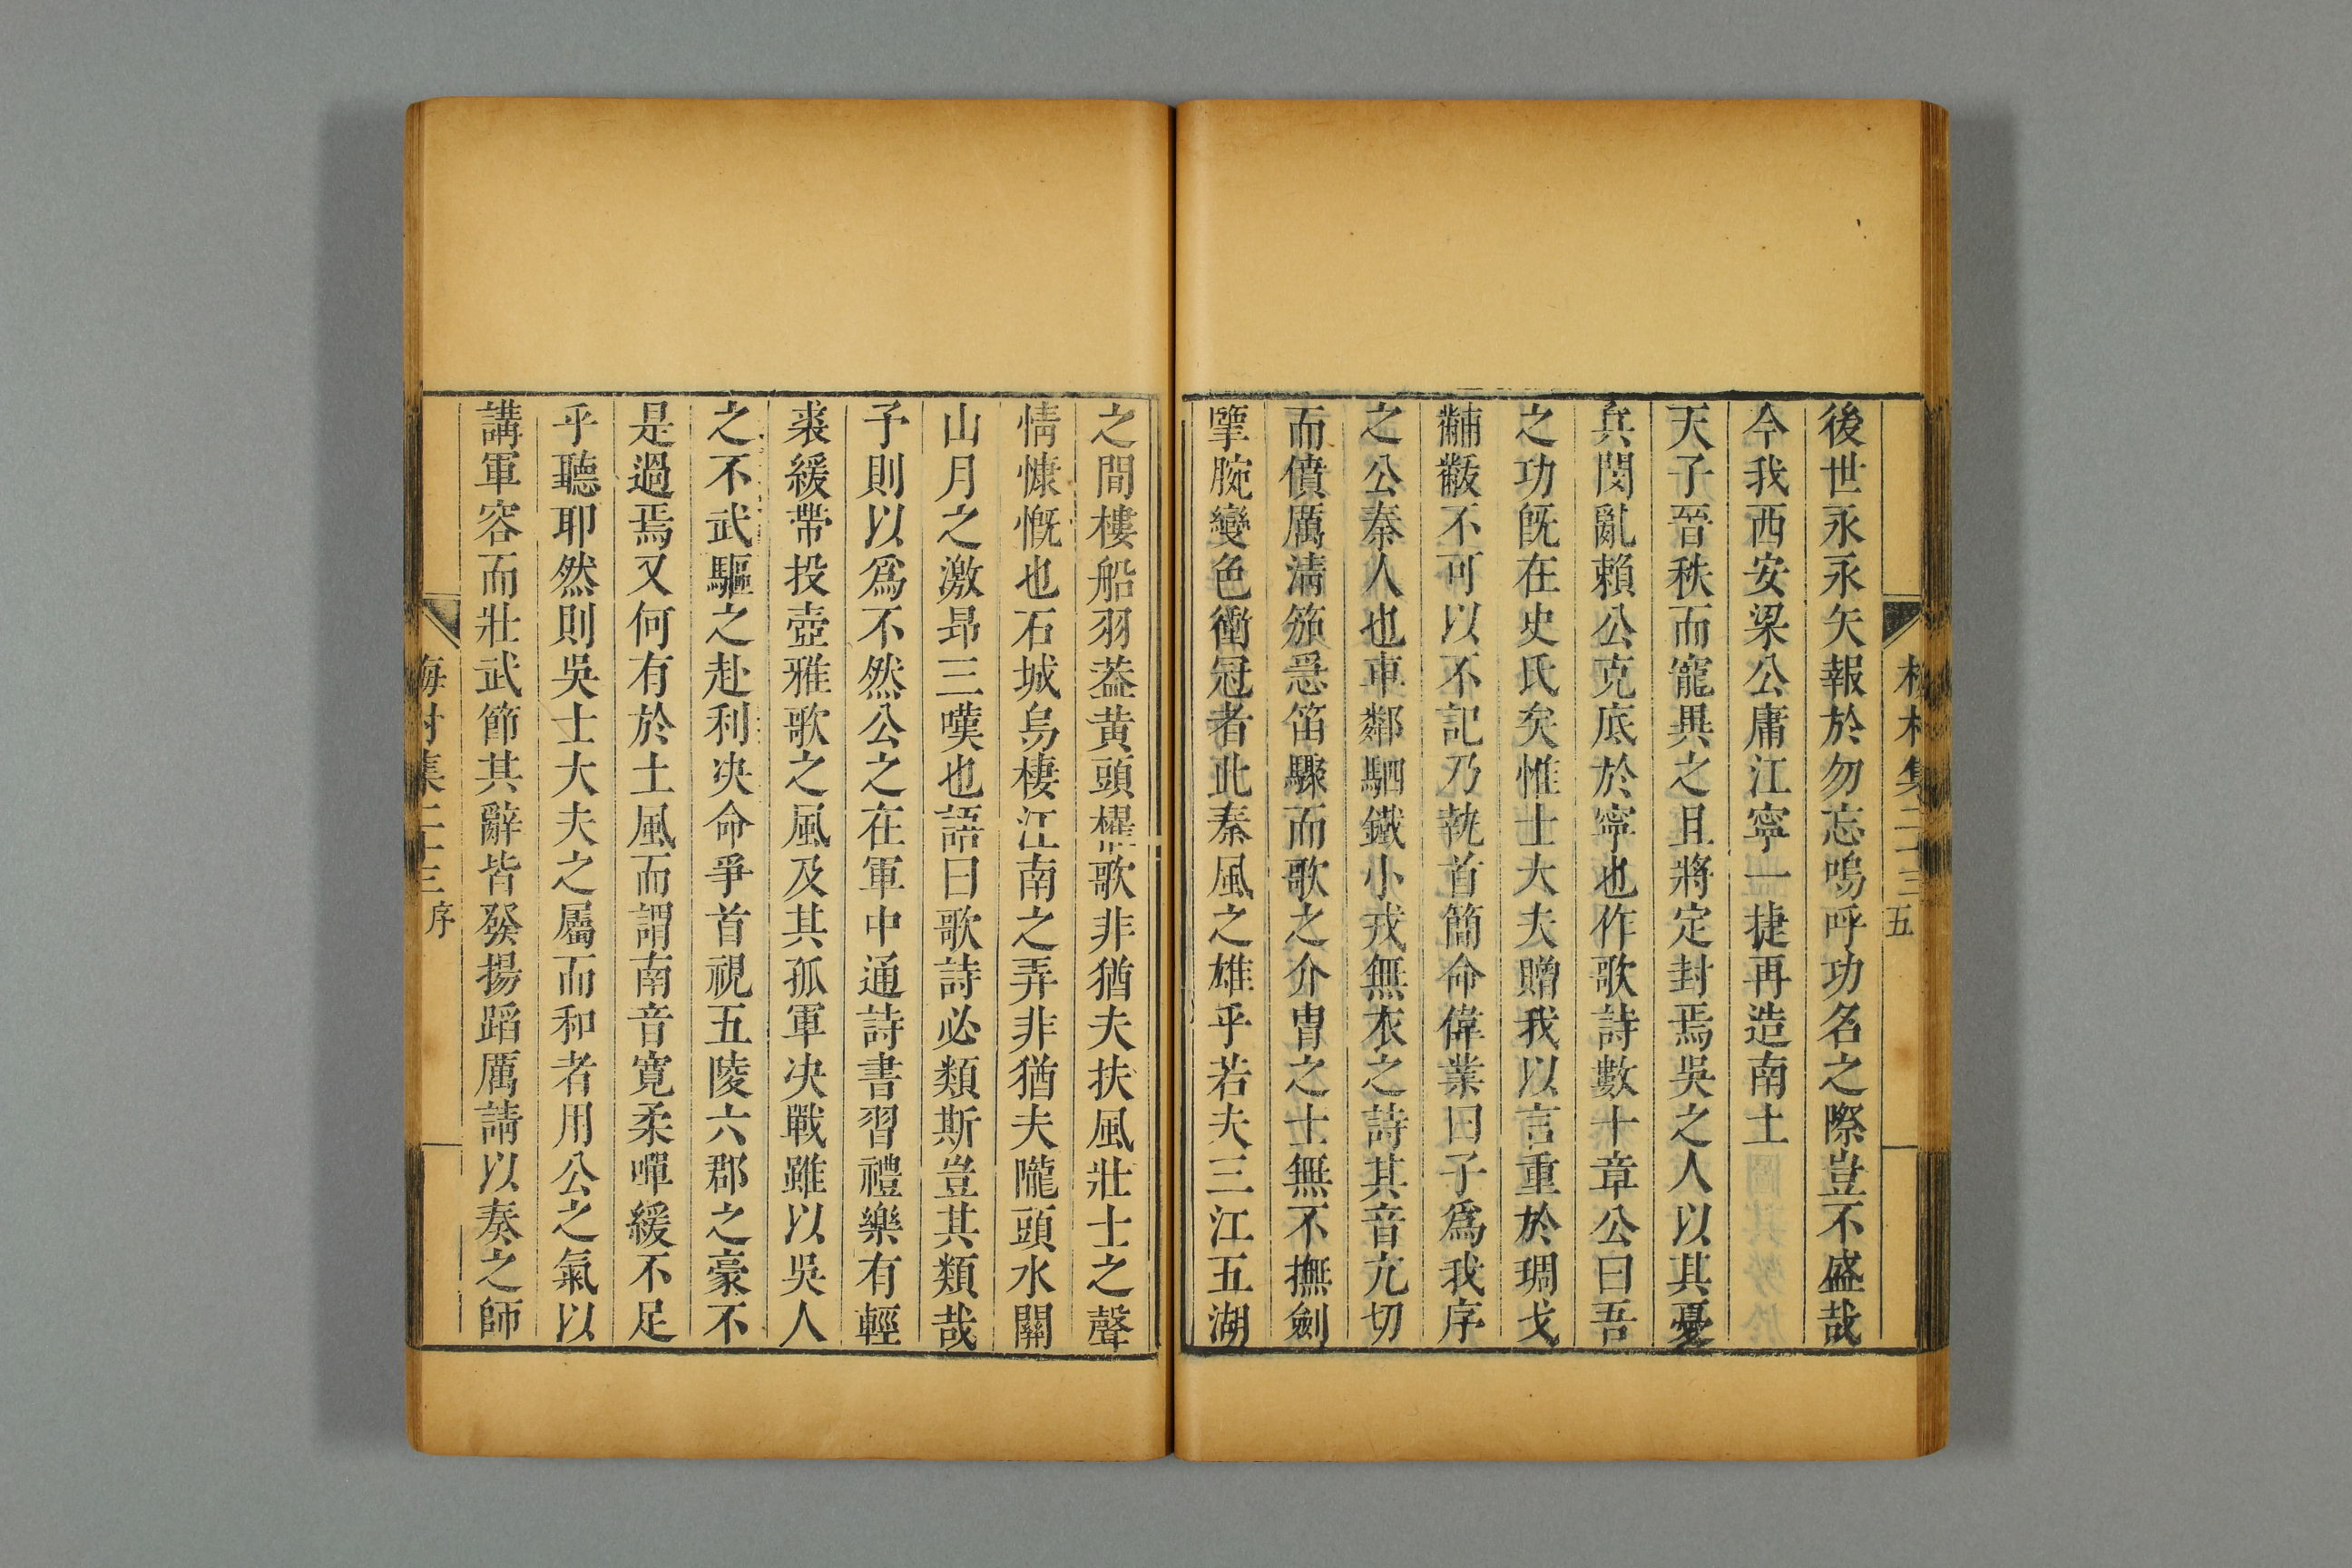 集二十三
五
後世永永矢報於勿忘嗚呼功名之際豈不盛哉
今我西安梁公庸江寧一捷再造南土
天子晉秩而寵異之且將定封焉吳之人以其憂
兵閔亂賴公克底於寧也作歌詩數十章公曰吾
之功旣在史氏矣惟士大夫贈我以言重於琱戈
黼黻不可以不記乃執首簡命偉業曰子爲我序
之公秦人也車鄰駟鐵小戎無衣之詩其音亢切
而僨厲淸笳惥笛驟而歌之介冑之士無不撫劍
掔腕變色衝冠者此秦風之雄乎若夫三江五湖
之間樓船羽葢黄頭櫂歌非猶夫扶風壯士之聲
情慷慨也石城烏棲江南之弄非猶夫隴頭水關
山月之激昂三嘆也語曰歌詩必類斯豈其類哉
予則以爲不然公之在軍中通詩書習禮樂有輕
裘緩帶投壺雅歌之風及其孤軍决戰雖以吳人
之不武驅之赴利决命爭首視五陵六郡之豪不
是過焉又何有於土風而謂南音寬柔嘽緩不足
乎聽耶然則吳士大夫之屬而和者用公之氣以
講軍容而壯武節其辭皆發揚蹈厲請以奏之師
梅村集二十三
序